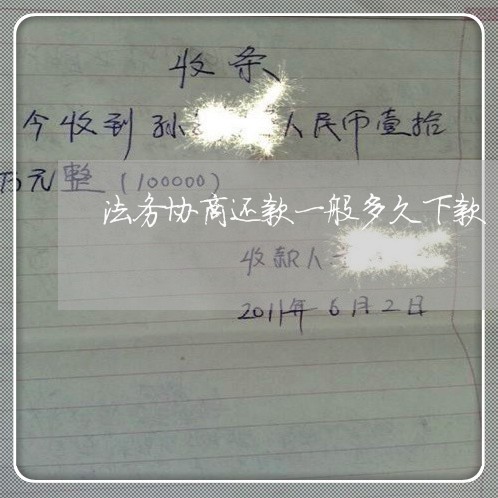 收条
今收到孙 人民币壹拾
万元整（100000）
法务协商还款一般多久下款
收款人
2011年6月2日